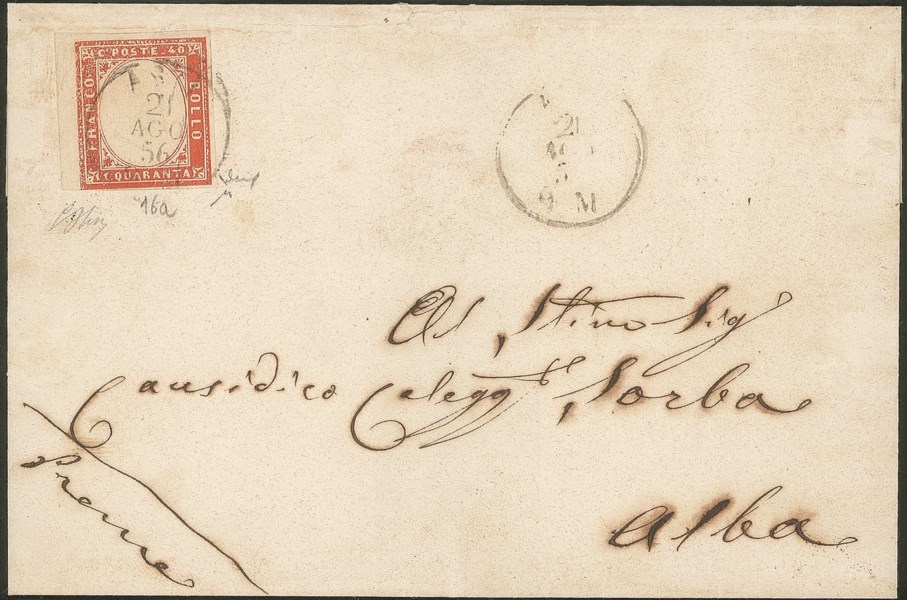 C. POSTE. 40
FRANCO
BOLLO
C. QUARANTA
21
AGO
56
16a
21
9 M
Al Stimo Sig
Causidico Coleggto Sorba
Alba
Preme